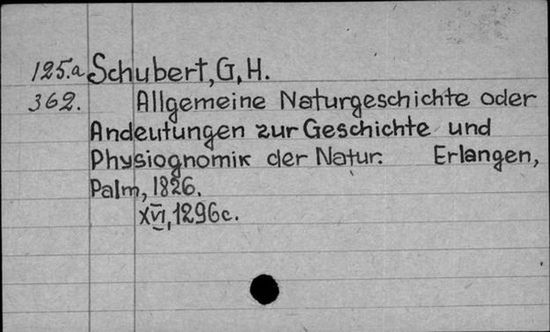 125.a Schubert, G, H.
362. Allgemeine Naturgeschichte oder
Andeutungen zur Geschichte und
Physiognomik der Natur. Erlangen,
Palm, 1826.
XVI, 1296c.